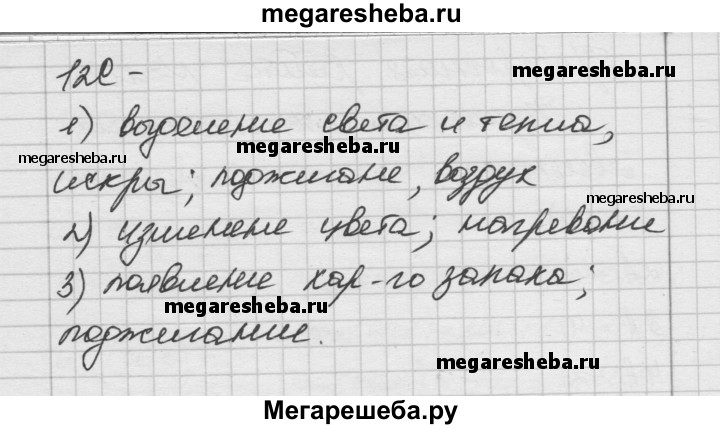 megaresheba.ru
12С –
megaresheba.ru
1) выделение света и тепла,
megaresheba.ru
megaresheba.ru
искры; поджигане, воздух
megaresheba.ru
2) изменене цвета; нагревание
3) появление хар-го запаха;
megaresheba.ru
поджигание.
megaresheba.ru
Мегарешеба.ру